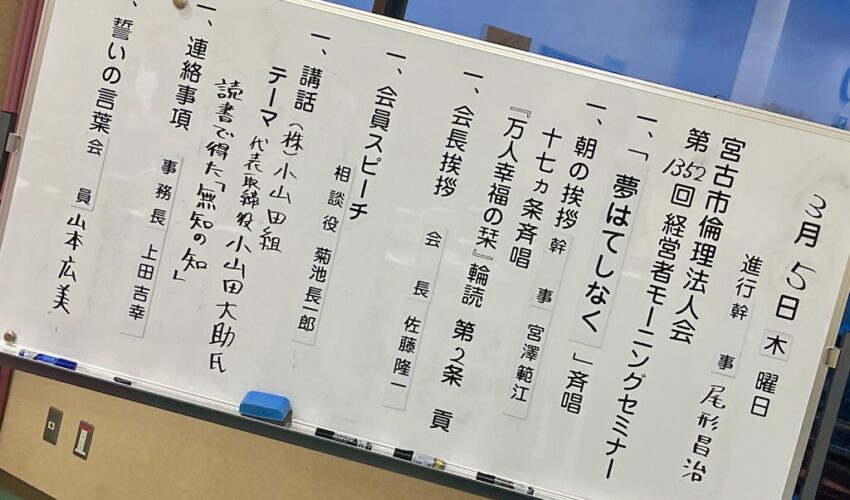 3月5日木曜日
進行幹事 尾形昌治
宮古市倫理法人会
第1352回 経営者モーニングセミナー
一、「夢はてしなく」斉唱
一、朝の挨拶 幹事 宮澤範江
十七ヵ条斉唱
『万人幸福の栞』輪読 第2条 貢
一、会長挨拶 会長 佐藤隆一
一、会員スピーチ
相談役 菊池長一郎
一、講話 (株)小山田組
代表取締役 小山田大助氏
テーマ
読書で得た「無知の知」
一、連絡事項 事務長 上田吉幸
、誓いの言葉 会員 山本広美